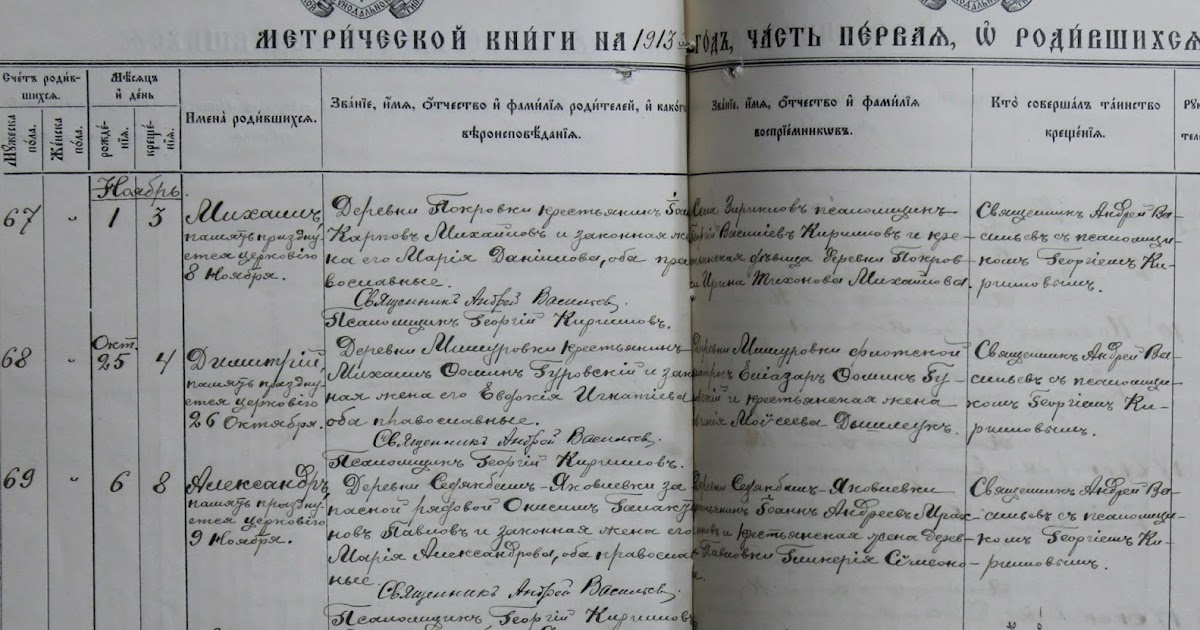 МЕТРИ́ЧЕСКОЙ КНИ́ГИ НА 1913 ГОДЪ, ЧА́СТЬ ПЕ́РВАѦ, Ѡ҆ РОДИ́ВШИХСѦ
Счетъ роди́в-
шихсѧ.
Мꙋжеска по́ла.
Же́нска по́ла.
Мѣ́сѧцъ
и҆ де́нь
рожде́-
нїѧ.
креще́-
нїѧ.
И҆мена̀ роди́вшихсѧ.
Зва́нїе, и҆́мѧ, ѻ҆́тчество и҆ фами́лїѧ роди́телей, и҆ како́г
вѣроисповѣ́данїѧ.
Зва́нїе, и҆́мѧ, ѻ҆́тчество и҆ фами́лїѧ
воспрїе́мникѡвъ.
Кто̀ соверша́лъ та́инство
креще́нїѧ.
Ноябрь.
67 " 1 3
Михаилъ,
память праздну-
ется церковію
8 Ноября.
Деревни Покровки крестьянинъ Іоа
Карповъ Михайловъ и законная же
на его Марія Данилова, оба пра
вославные.
Священникъ Андрей Васильевъ.
Псаломщикъ Георгій Кирилловъ.
Села псаломщикъ
Георгій Васильевъ Кирилловъ и кре-
дѣвица деревни Покров
Ирина Тихонова Михайлова.
Священникъ Андрей Ва-
сильевъ съ псаломщи-
комъ Георгіемъ Ки-
рилловымъ.
Окт.
68 " 25 4
Димитрій,
память праздну-
ется церковію
26 Октября.
Деревни Мишуровки крестьянинъ
Михаилъ Ѳоминъ Гуровскій и закон
ная жена его Евдокія Игнатіева
оба православные.
Священникъ Андрей Васильевъ.
Псаломщикъ Георгій Кирилловъ.
Деревни Мишуровки флотской
Елиазаръ Ѳоминъ Гу-
ровскій и крестьянская жена
Моѵсеева
Священникъ Андрей Ва-
сильевъ съ псаломщи-
комъ Георгіемъ Ки-
рилловымъ.
69 " 6 8
Александръ,
память праздну-
ется церковію
9 Ноября.
Деревни Седякбашъ-Яковлевки за
пасной рядовой Онисимъ
новъ Павловъ и законная жена его
Марія Александрова, оба православ
ные.
Священникъ Андрей Васильевъ.
Псаломщикъ Георгій Кирилловъ
Деревни Седякбашъ-Яковлевки
Іоаннъ Андреевъ
и крестьянская жена дерев
Павловки Гликерія Сѵмеоно-
Священникъ Андрей Ва-
сильевъ съ псаломщи-
комъ Георгіемъ Ки-
рилловымъ.